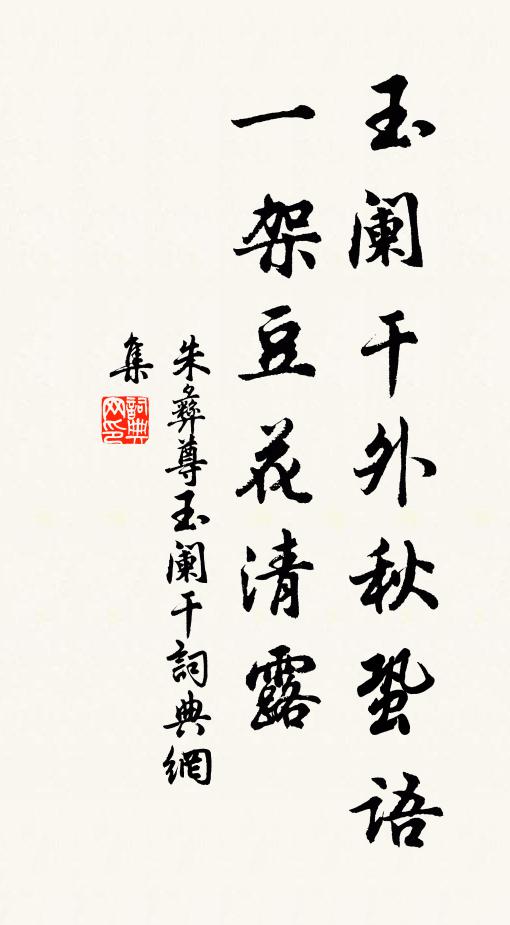 玉阑干外秋蛩语
一架豆花清露
朱彝尊玉阑干詞典網
集
詞典
网印